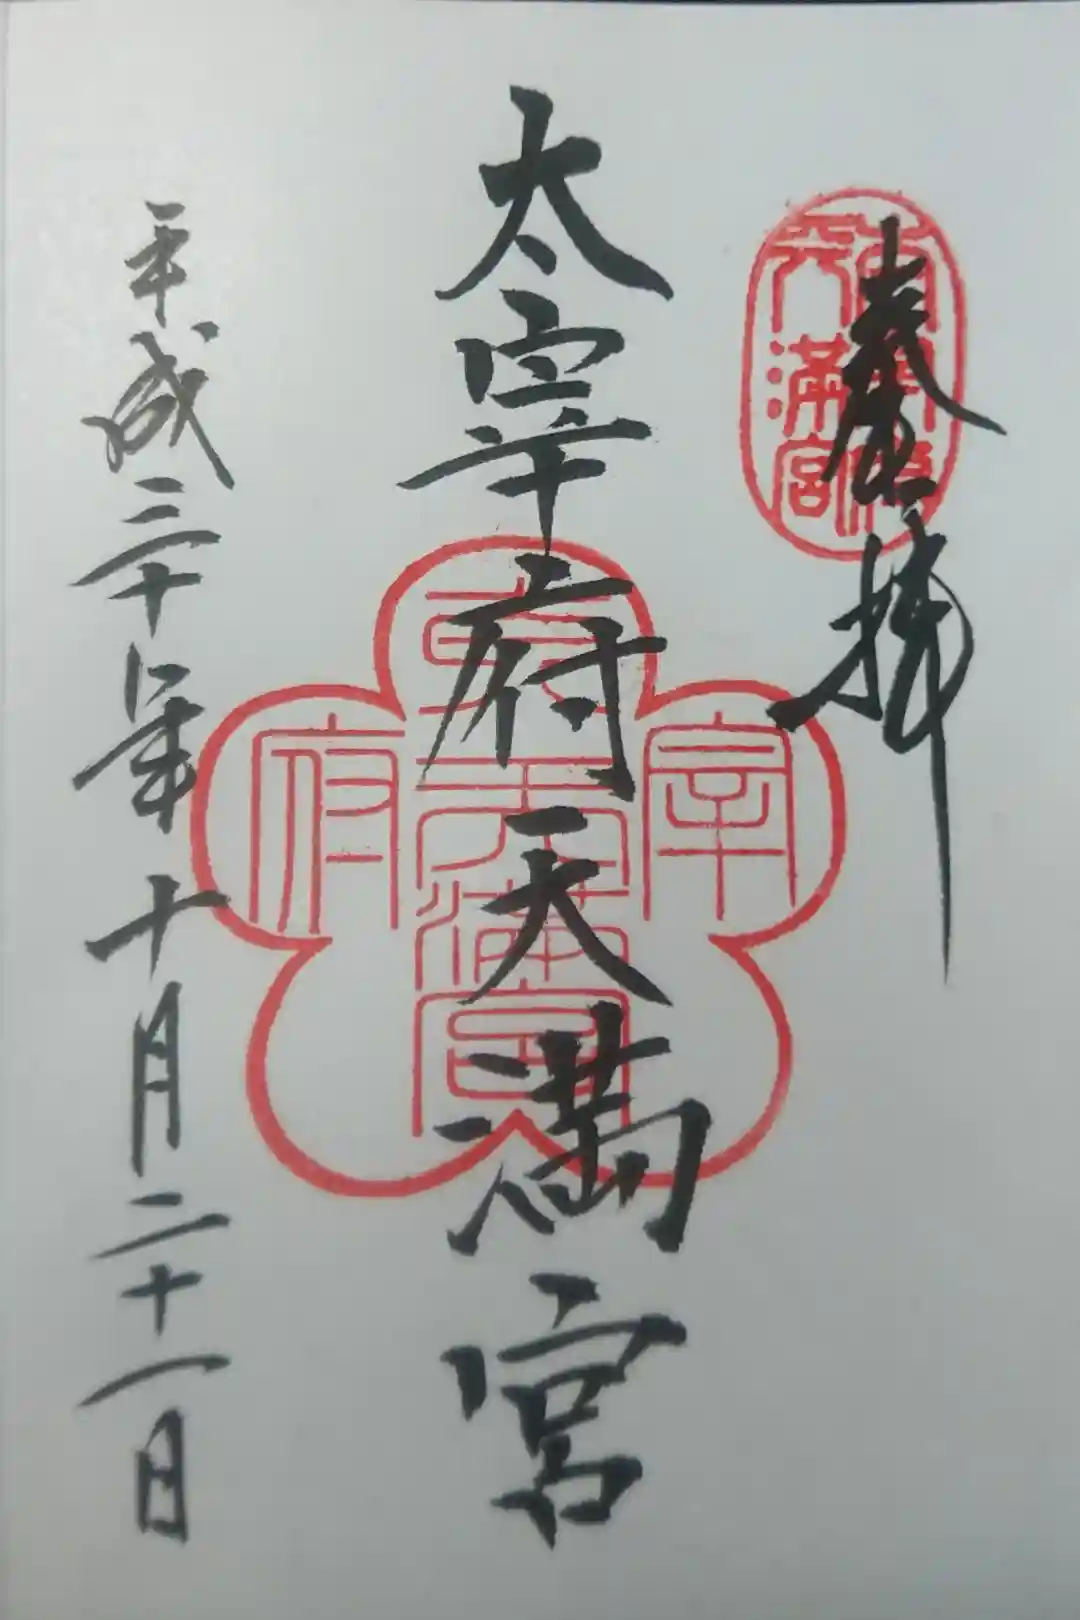 奉拝
太宰府天満宮
平成三十年十月二十一日
宰
府
天
満宮
天満宮